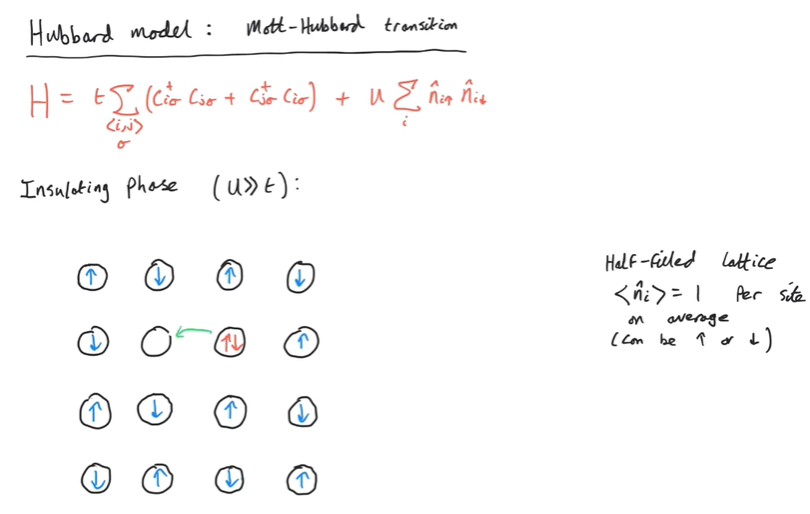 Hubbard model : Mott-Hubbard transition
H = t ∑ (c†iσ cjσ + c†jσ ciσ) + u ∑ n̂i↑ n̂i↓
<i,j> i
σ
Insulating phase (u≫t):
Half-filled lattice
<n̂i> = 1 per site
on average
(can be ↑ or ↓)
↑ ↓ ↑ ↓
↓ ↑↓ ↑
↑ ↓ ↑ ↓
↓ ↑ ↓ ↑